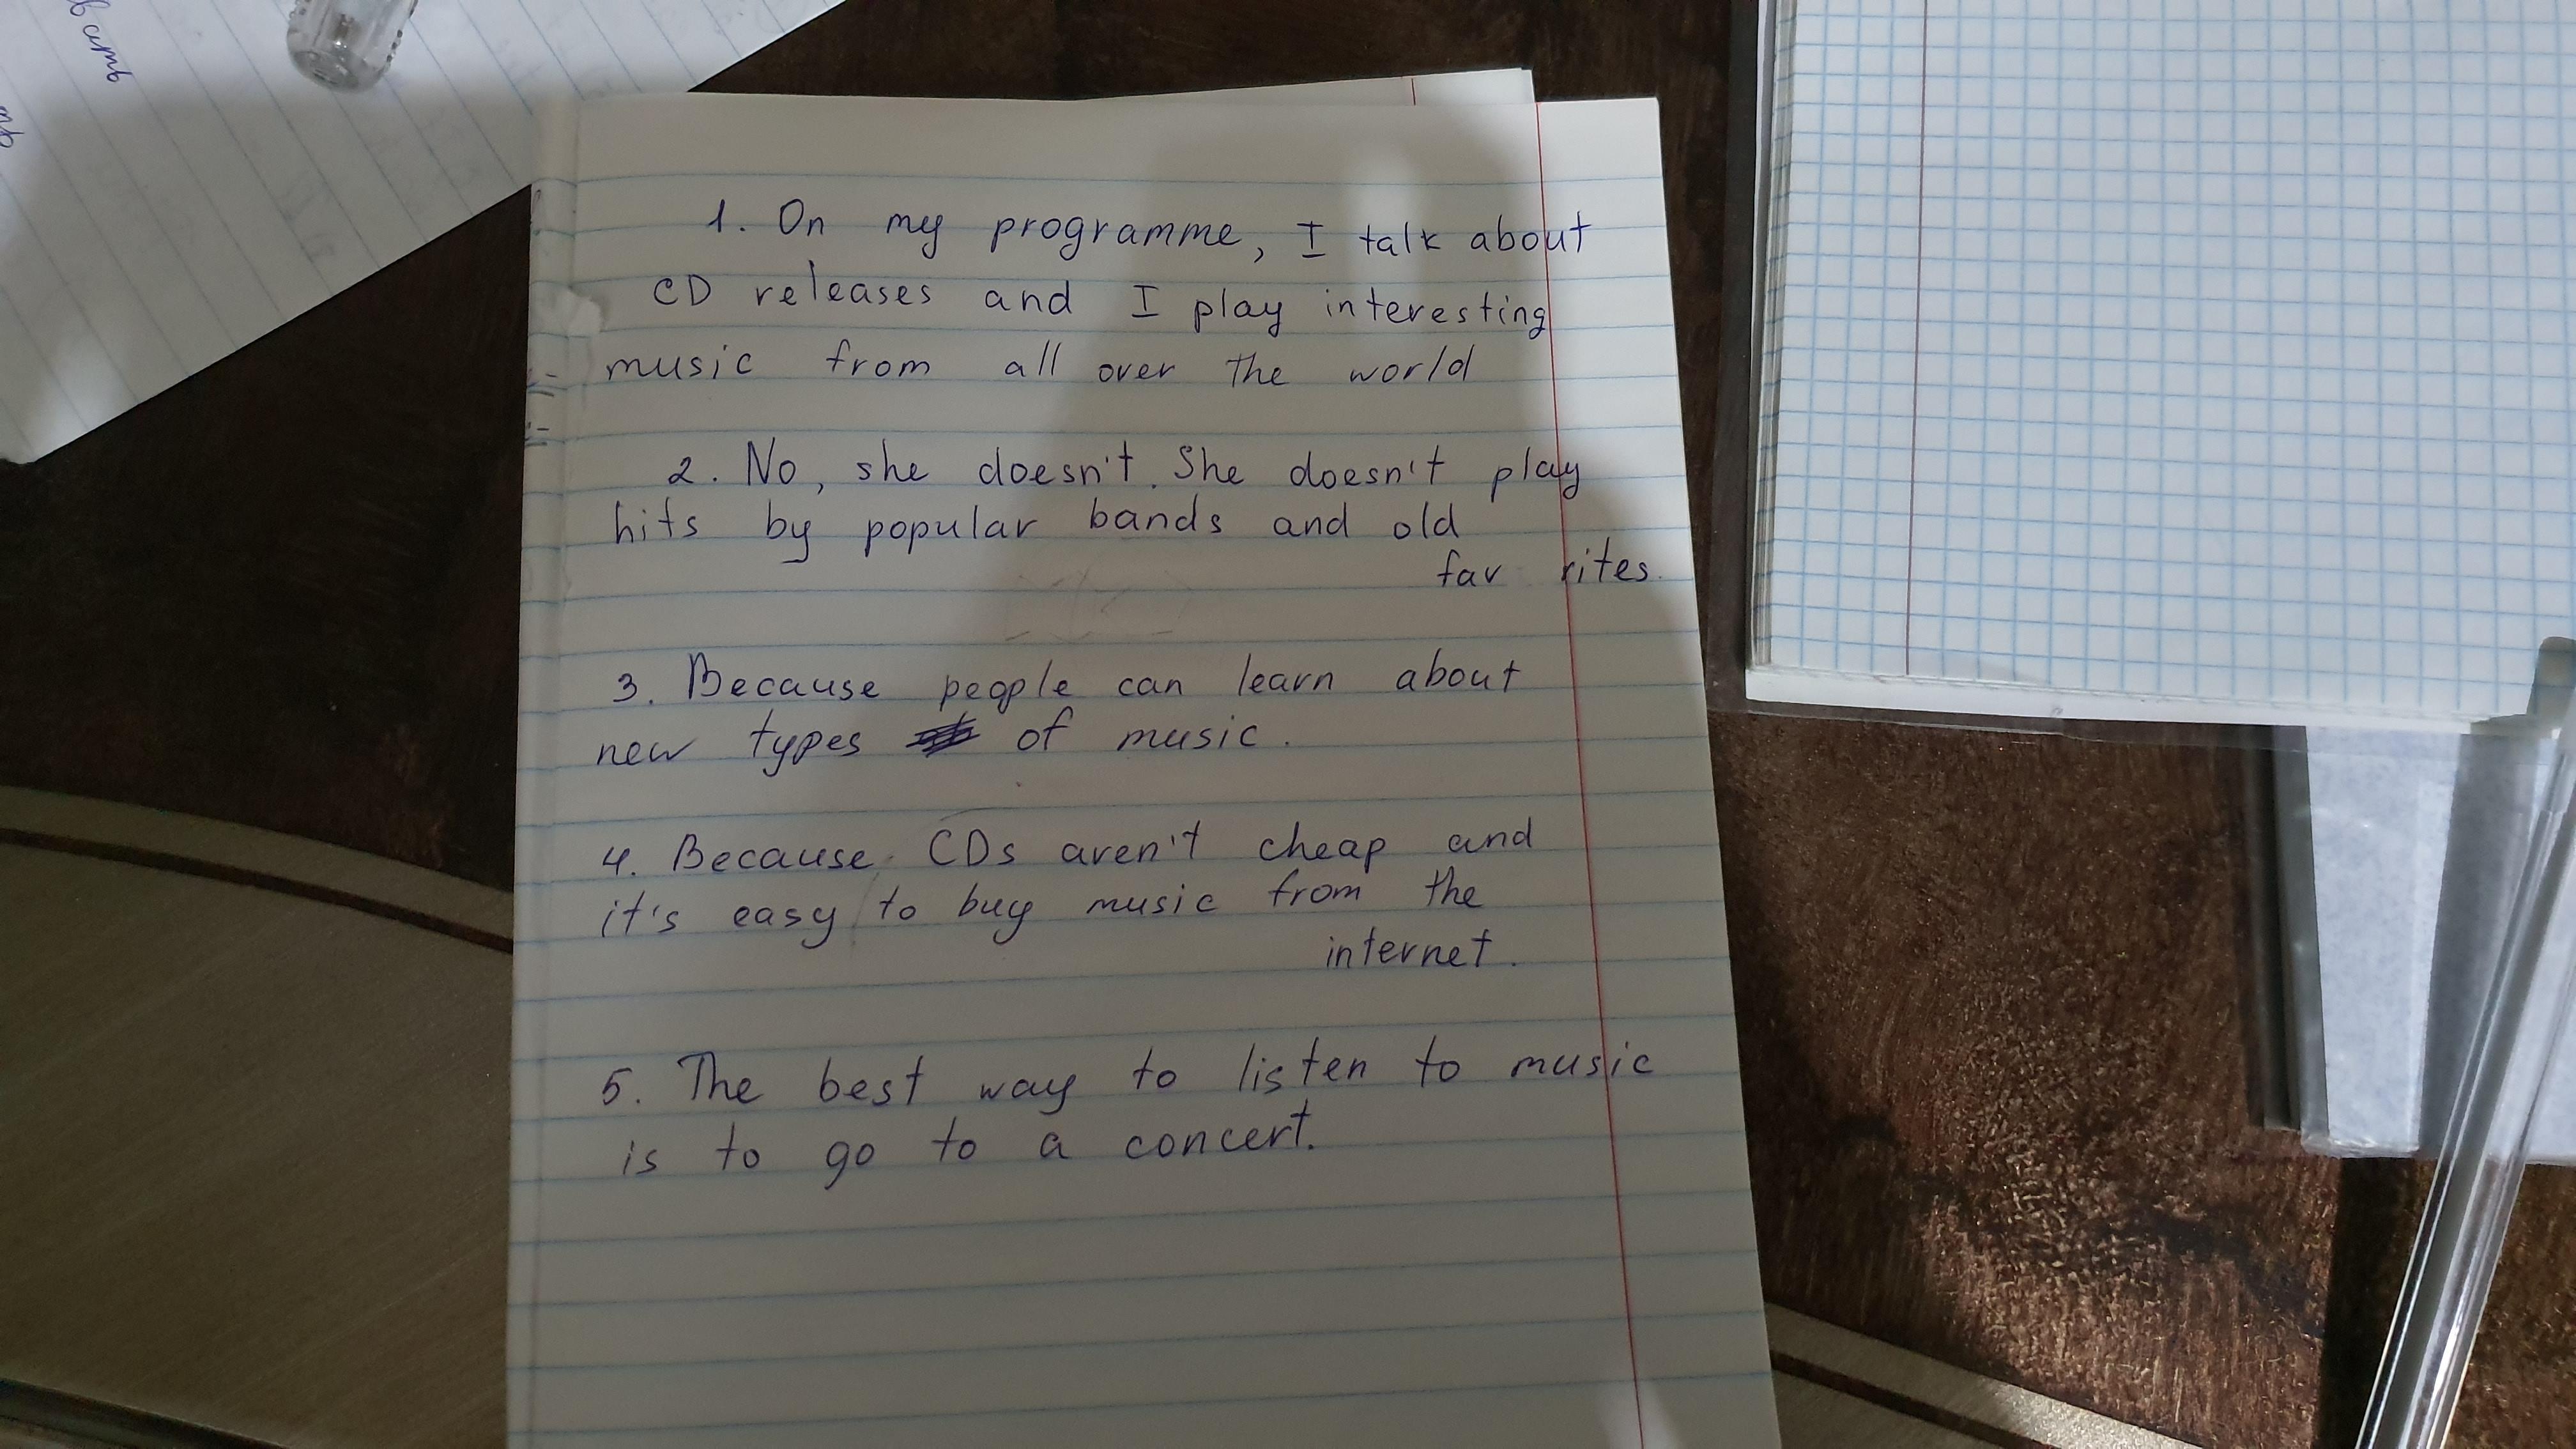 вать
ть
1. On my programme, I talk about
CD releases and I play interesting
music from all over the world
2. No, she doesn't. She doesn't play
hits by popular bands and old
fav rites.
3. Because people can learn about
new types of music.
4. Because CDs aren't cheap and
it's easy to buy music from the
internet.
5. The best way to listen to music
is to go to a concert.